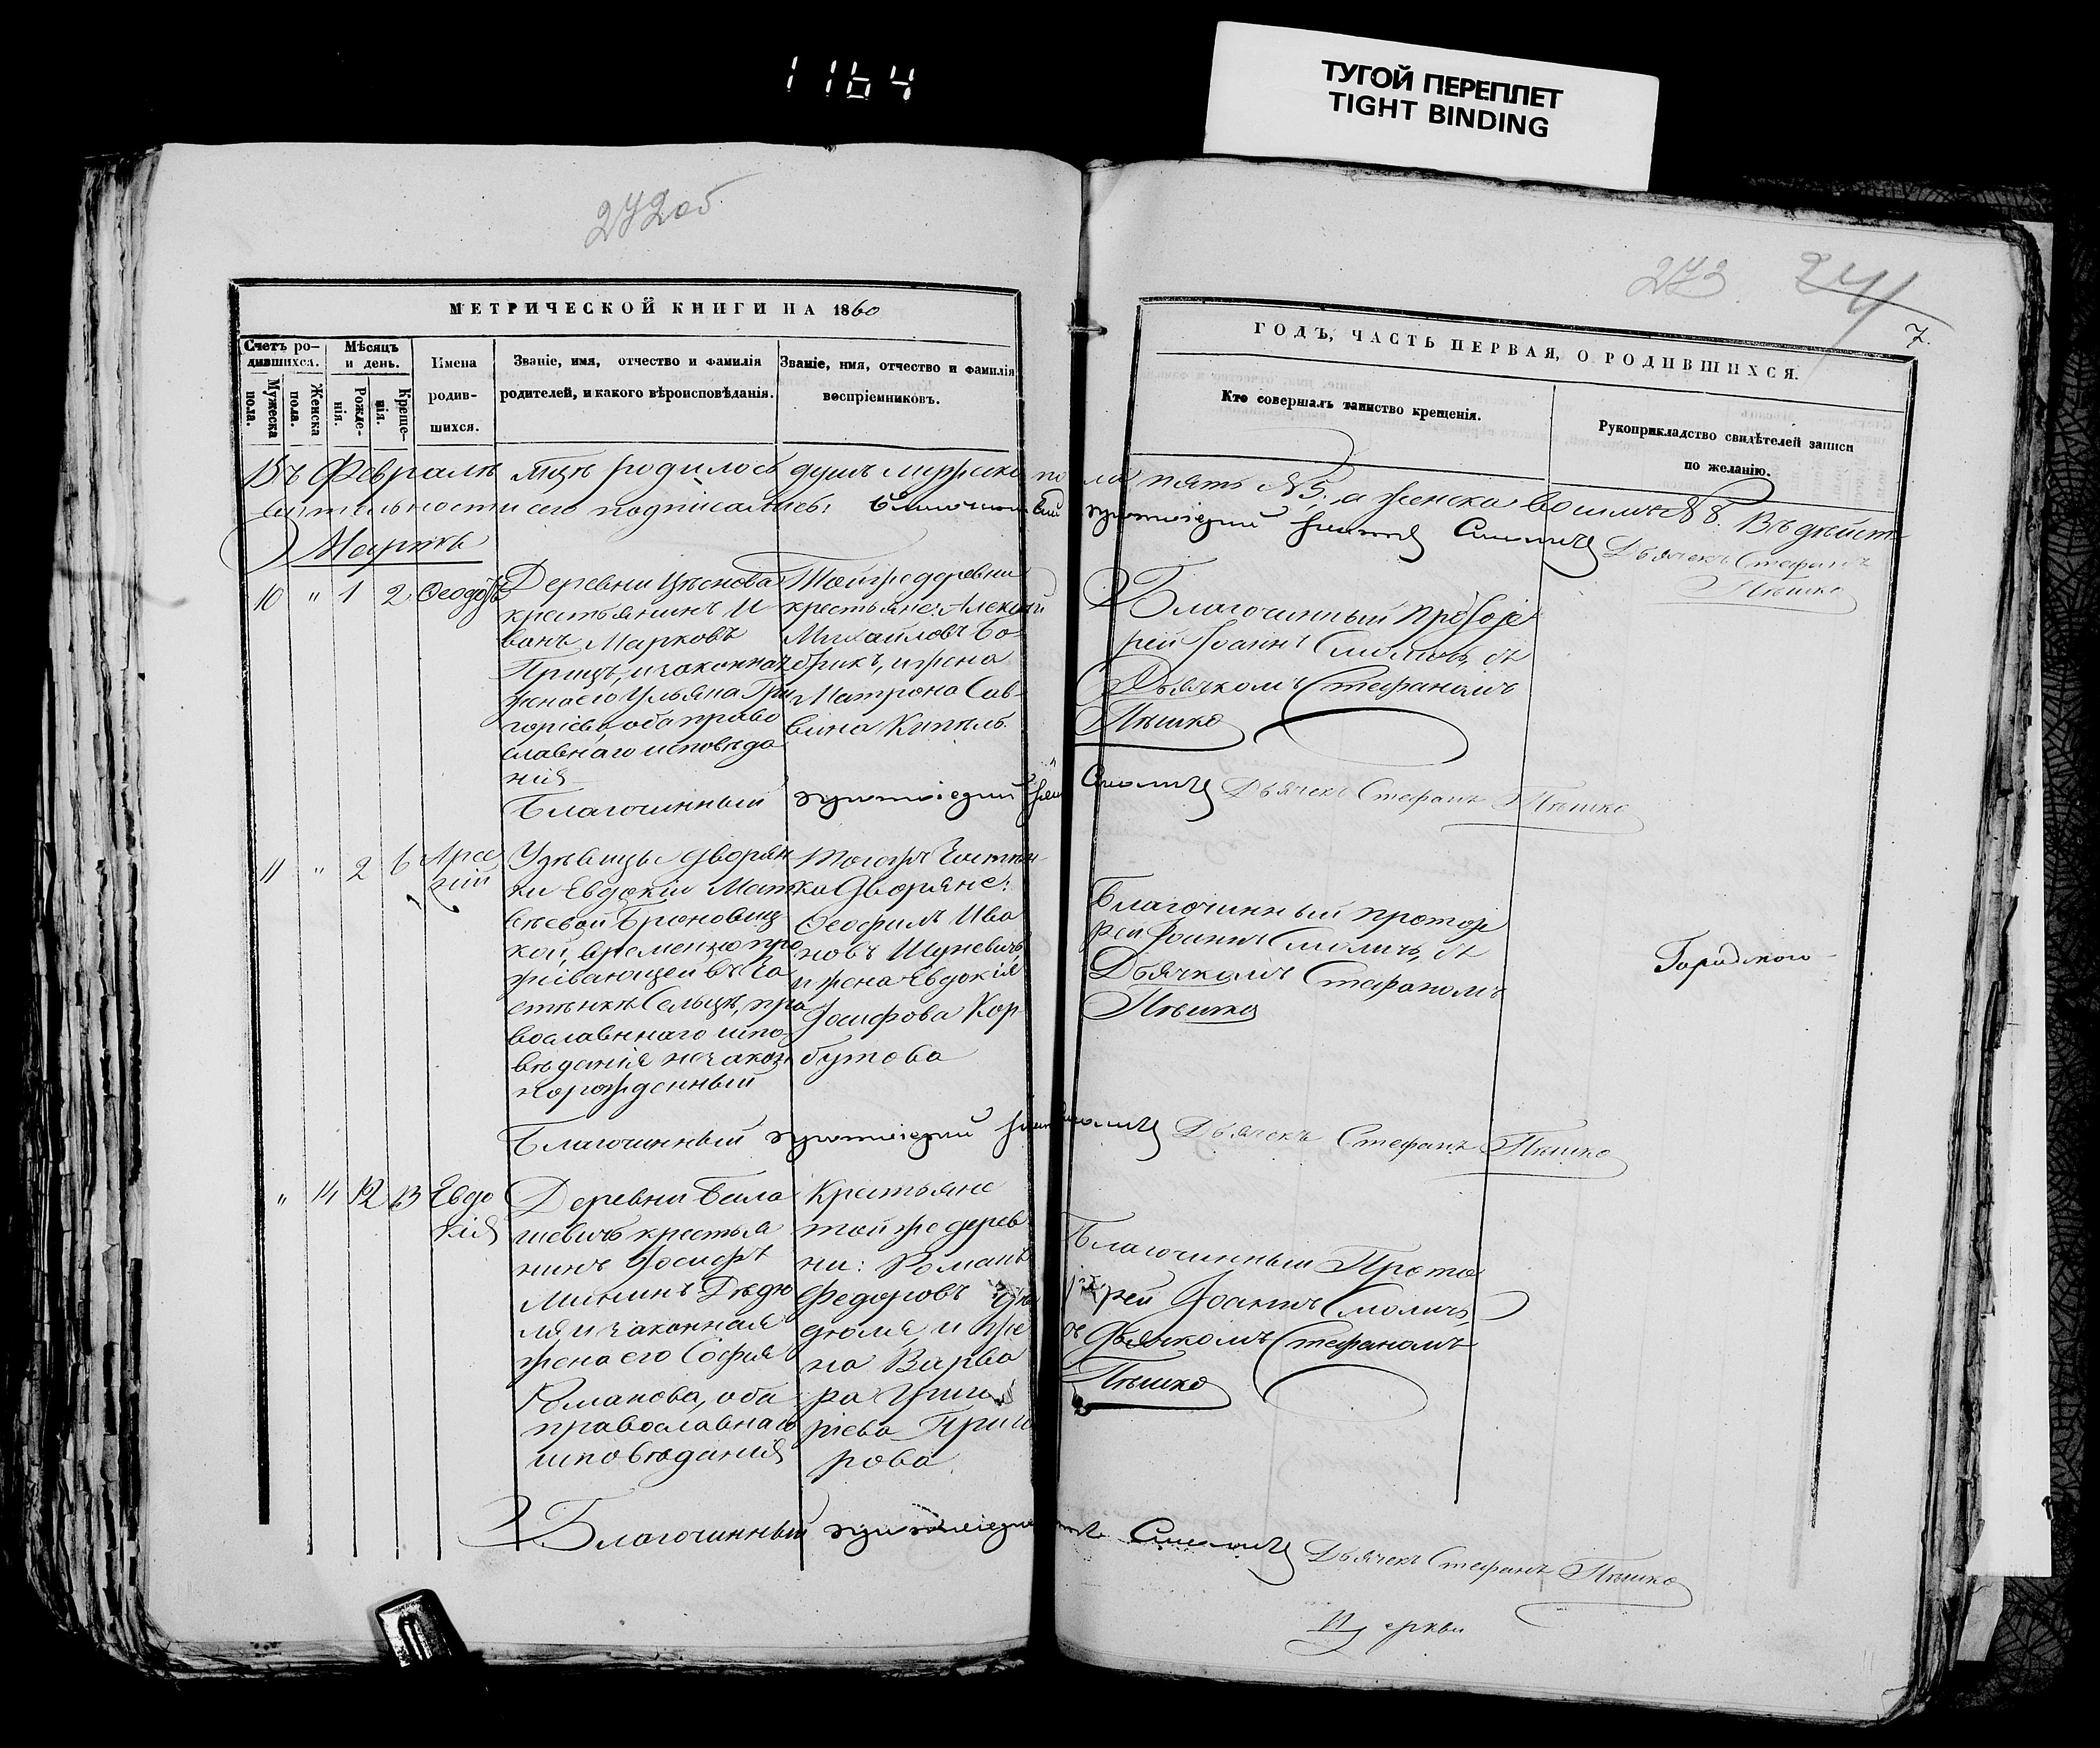 1164
ТУГОЙ ПЕРЕПЛЕТ
TIGHT BINDING
272об
273
241
7.
МЕТРИЧЕСКОЙ КНИГИ НА 1860
ГОДЪ, ЧАСТЬ ПЕРВАЯ, О РОДИВШИХСЯ.
Счетъ родившихся.
Мужеска пола.
Женска пола.
Мѣсяцъ и день.
Рожденія.
Крещенія.
Имена родившихся.
Званіе, имя, отчество и фамилія
родителей, и какого вѣроисповѣданія.
Званіе, имя, отчество и фамилія
воспріемниковъ.
Кто совершалъ таинство крещенія.
Рукоприкладство свидѣтелей записи
по желанію.
Въ Февралѣ мцѣ родилось душъ мужска пола пять №5, а женска восимъ №8. Въ дѣйст
вительности сего подписались: Благочинный протоіерей Іоаннъ Смоличъ Дьячекъ Стефанъ
Пѣшко
Мартъ
10 " 1 2
Деревни
крестьянинъ И
ванъ Марковъ
и законная
жена его Ульяна Гри
горіева, оба право
славнаго исповѣда
нія
Тойже деревни
крестьяне: Алексій
Михайловъ Бо
брикъ, и жена
Матрона Сав
вина
Благочинный протоіе
рей Іоаннъ Смоличъ, съ
Дьячкомъ Стефаномъ
Пѣшко
Благочинный протоіерей Іоаннъ Смоличъ Дьячекъ Стефанъ Пѣшко
11 " 2 6
Арсе
ній
дворян
ки Евдокіи Мат
вѣевой
кой, временно про
живающей въ За
стѣнкѣ Сельцѣ, пра
вославнаго испо
вѣданія незакон
норожденный
Тогожъ Застѣн
ка Дворяне:
Ѳеофилъ Ива
новъ
и жена Евдокія
Іосифова Кор
бутова
Благочинный протоіе
рей Іоаннъ Смоличъ, съ
Дьячкомъ Стефаномъ
Пѣшко
Городского
Благочинный протоіерей Іоаннъ Смоличъ Дьячекъ Стефанъ Пѣшко
" 14 12 13
Евдо
кія
Деревни Бала
шевичъ крестья
нинъ Іосифъ
Мининъ Дѣдю
ля и законная
жена его Софія
Романова, оба
православнаго
исповѣданія
Крестьяне
тойже дерев
ни: Романъ
Федоровъ Дѣ
дюля, и же
на Варва
ра Григо
ріева
Благочинный Прото
іерей Іоаннъ Смоличъ,
съ Дьячкомъ Стефаномъ
Пѣшко
Благочинный протоіерей Смоличъ Дьячекъ Стефанъ Пѣшко
Церкви